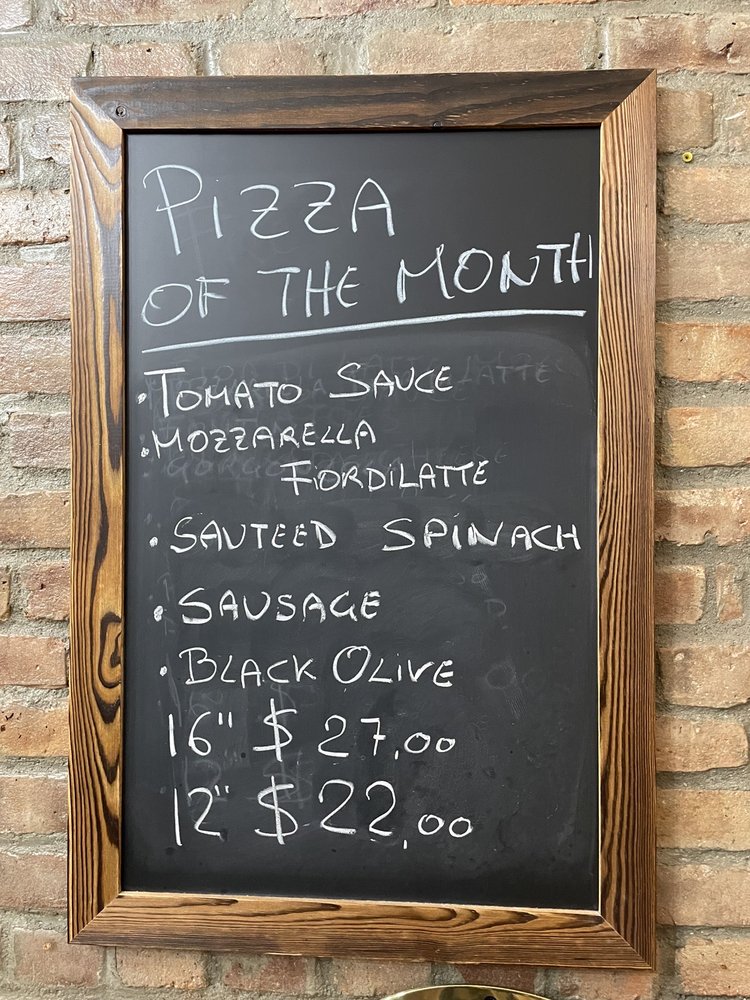 PIZZA
OF THE MONTH
• TOMATO SAUCE
• MOZZARELLA
FIORDILATTE
• SAUTEED SPINACH
• SAUSAGE
• BLACK OLIVE
16" $ 27,00
12" $ 22,00